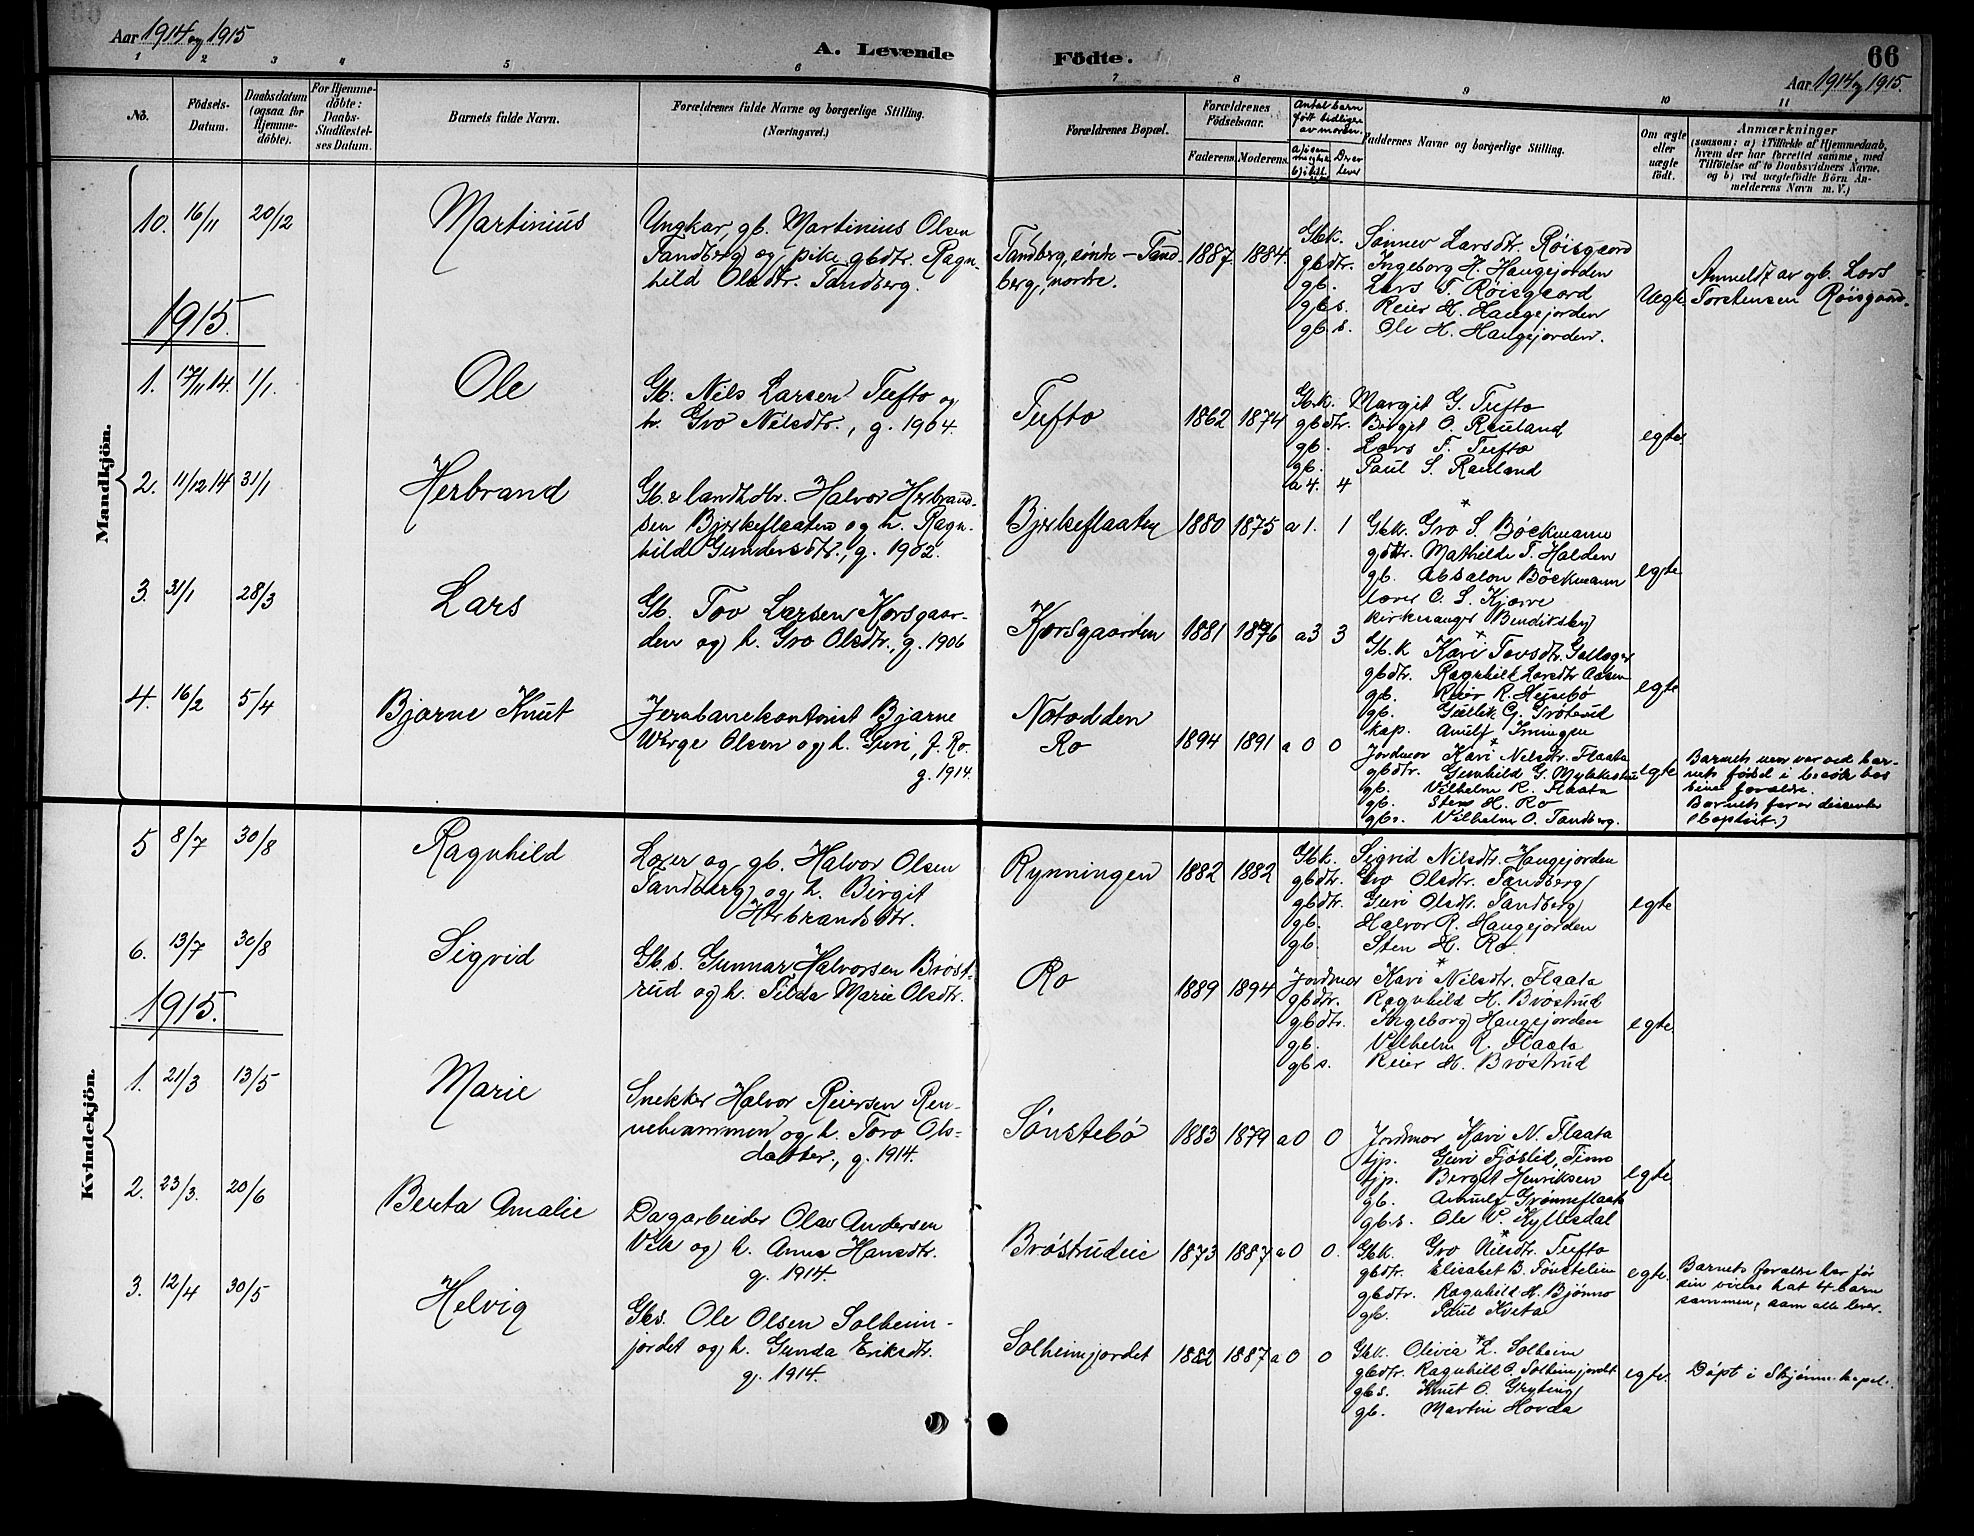 Aar 1914 og 1915
A. Levende
Födte.
66
Aar 1914 og 1915.
1 2 3 4 5 6 7 8 9 10 11
No.
Födsels-
Datum.
Daabsdatum
(ogsaa for
Hjemme-
döbte).
For Hjemme-
döbte:
Daabs-
Stadfæstel-
ses Datum.
Barnets fulde Navn.
Forældrenes fulde Navne og borgerlige Stilling.
(Næringsvei.)
Forældrenes Bopæl.
Forældrenes
Födselsaar.
Faderens. Moderens.
Antal barn
født tidligere
av moren.
Derav
lever
Faddernes Navne og borgerlige Stilling.
Om ægte
eller
uægte
födt.
Anmærkninger
(saasom: a) i Tilfælde af Hjemmedaab,
hvem der har forrettet samme, med
Tilföielse af to Daabsvidners Navne,
og b) ved uægtefödte Börn An-
melderens Navn m. V.)
Mandkjön.
10. 16/11 20/12 Martinius
Ungkar gb. Martinius Olsen
Tandberg og pike gbdtr. Ragn-
hild Olsdtr. Tandberg.
Tandberg, söndre – Tand-
berg, nordre.
1887. 1884.
Gbk. Sönnev Larsdtr. Röisgaard
gbdtr. Ingeborg H. Haugejorden
gb. Lars T. Röisgaard
gbs. Reier H. Haugejorden
gbs. Ole H. Haugejorden.
Uegte
Anmeldt av gb. Lars
Torstensen Röisgaard.
1915.
1. 17/11 14. 1/1. Ole
Gb. Nils Larsen Tufto og
h. Gro Nilsdtr., g. 1904.
Tufto
1862 1874
a 4. 4
Gbk. Margit G. Tufto
gbdtr. Birgit O. Rauland
gb. Lars T. Tufto
gb. Paul S. Rauland
egte
2. 11/12 14 31/1 Herbrand
Gb. & landh.dlr. Halvor Herbrand-
sen Bjerkeflaaten og h. Ragn-
hild Gundersdtr., g. 1902.
Bjerkeflaaten
1880 1875 a 1. 1
Gbk. Gro S. Böckmann
gbdtr. Mathilde T. Halden
gb. Absalon Böckmann
lærer O. S. Kjærre
kirkesanger Bendiksby
egte
3. 31/1 28/3 Lars
Gb. Tov Larsen Korsgaar-
den og h. Gro Olsdtr., g. 1906
Korsgaarden
1881 1876 a 3 3
Gbk Kari Tovsdtr. Gollager
gbdtr. Ragnhild Larsdtr. Aasen
gb. Reier R. Husebö
gb. Gullik G. Gröterud
kap. Arnulf Irningen
egte
4. 16/2 5/4 Bjarne Knut
Jernbanekontorist Bjarne
Werge Olsen og h. Guri, f. Ro.
g. 1914.
Notodden
Ro
1894 1891 a 0 0
Jordmor Kari Nilsdtr. Flaata
gbdtr. Gunhild G. Myrkestue
gb. Vilhelm R. Flaata
gb. Sten H. Ro
gbs. Vilhelm O. Tandberg.
egte
Barnets mor var ved bar-
nets födsel i besök hos
sine forældre.
Barnets far er dissenter
(baptist.)
Kvindekjön.
5 8/7 30/8 Ragnhild
Lærer og gb. Halvor Olsen
Tandberg og h. Birgit
Herbrandsdtr.
Rynningen
1882 1882
Gbk. Sigrid Nilsdtr. Haugejorden
gbdtr. Gro Olsdtr. Tandberg
gbdtr. Guri Olsdtr. Tandberg
gb. Halvor R. Haugejorden
gb. Sten H. Ro
egte
6. 13/7 30/8 Sigrid
Gbs. Gunnar Halvorsen Bröst-
rud og h. Tilda Marie Olsdtr.
Ro
1889 1894
Jordmor Kari Nilsdtr. Flaata
gbdtr. Ragnhild H. Bröstrud
gbdtr. Ingeborg Haugejorden
gb. Vilhelm R. Flaata
gbs. Reier H. Bröstrud
egte.
1915.
1. 21/3 13/5 Marie
Snekker Halvor Reiersen Ren-
nehvammen og h. Tora Ols-
datter., g. 1914.
Sönstebö
1883 1879 a 0 0
Jordmor Kari N. Flaata
tjp. Guri Fjöslid, Finno
tjp. Bergit Henriksen
gb. Arnulf Grönneflaata
gbs. Ole V. Kyllesdal
egte
2. 23/3. 20/6 Berta Amalie
Dagarbeider Olav Andersen
Vik og h. Anna Hansdtr.
g. 1914.
Bröstrudeie
1873 1887 a 0 0.
Gbk. Gro Nilsdtr. Tufto
gbdtr. Elisabet B. Tönstelien
gbdtr. Ragnhild H. Bjönno
gb. Paul Kveta
egte.
Barnets forældre har för
sin vielse hat 4 barn
sammen, som alle lever.
3. 12/4 30/5 Helvig
Gbs. Ole Olsen Solheim-
jordet og h. Gunda Eriksdtr.
g. 1914.
Solheimjordet
1882 1887 a 0 0
Gbk. Olivia L. Solheim
gbdtr. Ragnhild O. Solheimjordet
gbs. Knut O. Gryting
gb. Martin Hovda
egte.
Döpt i Skjönne kapel.